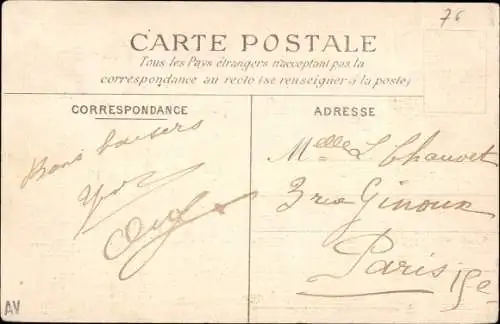 76
CARTE POSTALE
Tous les Pays étrangers n'acceptant pas la
correspondance au recto (se renseigner à la poste)
CORRESPONDANCE
ADRESSE
Bons baisers
Melle L. Chauvet
3 rue Ginoux
Paris 15e
AV